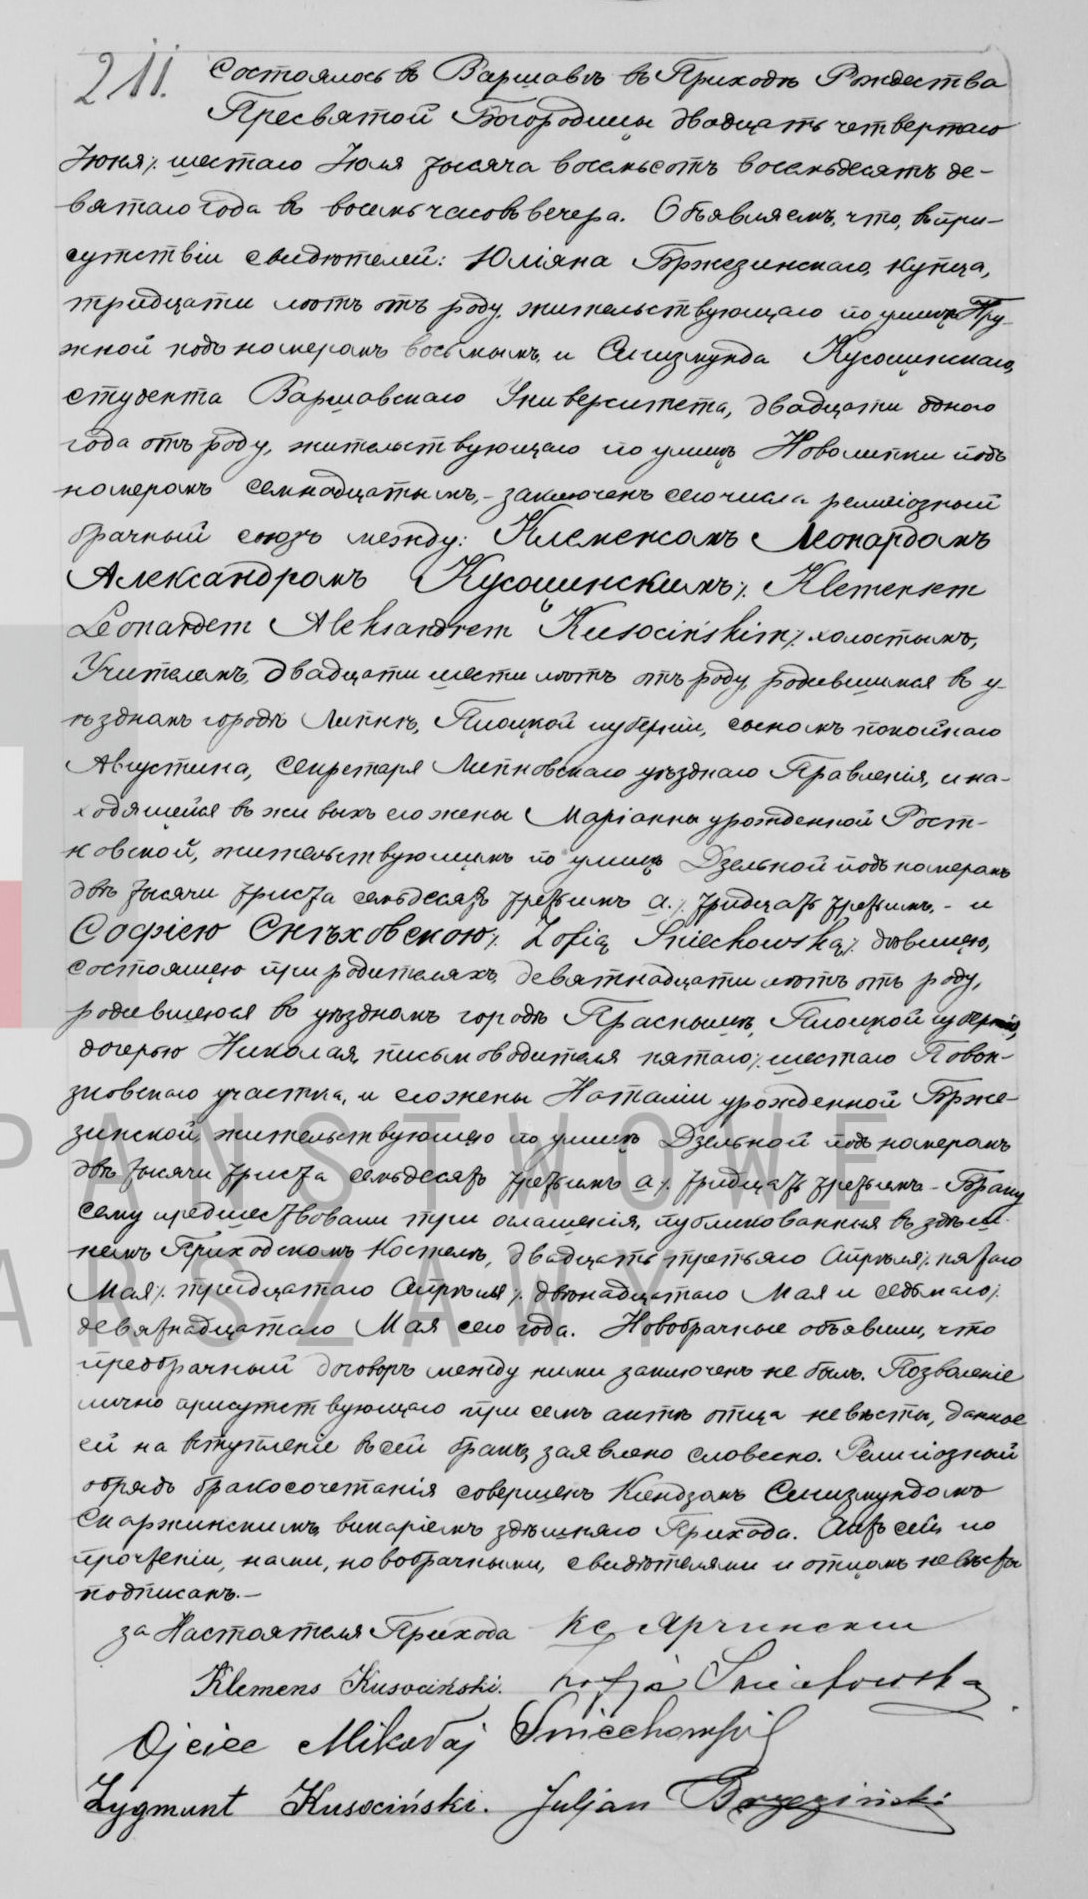 211. Состоялось въ Варшавѣ въ Приходѣ Рождества
Пресвятой Богородицы двадцать четвертаго
Іюня /: шестаго Іюля тысяча восемьсотъ восемьдесятъ де-
вятаго года въ восемь часовъ вечера. Объявляемъ, что, въ при-
сутствіи свидѣтелей: Юліяна Бржезинскаго, купца,
тридцати лѣтъ отъ роду, жительствующаго по улицѣ Пру-
жной подъ номеромъ восьмымъ, и Сигизмунда Кусоцинскаго,
студента Варшавскаго Университета, двадцати одного
года отъ роду, жительствующаго по улицѣ Новолипки подъ
номеромъ семнадцатымъ, - заключенъ сего числа религіозный
брачный союзъ между: Клеменсомъ Леонардомъ
Александромъ Кусоцинскимъ /: Klemensem
Leonardem Aleksandrem Kusocińskim /: холостымъ,
Учителемъ, двадцати шести лѣтъ отъ роду, родившимся въ у-
ѣздномъ городѣ Липнѣ, Плоцкой губерніи, сыномъ покойнаго
Августина, Секретаря Липновскаго уѣзднаго Правленія, и на-
ходящейся въ живыхъ его жены Маріанны урожденной Рост-
ковской, жительствующимъ по улицѣ Дзельной подъ номеромъ
двѣ тысячи триста семьдесятъ третьимъ а. /: тридцать третьимъ, - и
Софіею Снѣховскою /: Zofią Śniechowską /: дѣвицею,
состоящею при родителяхъ, девятнадцати лѣтъ отъ роду,
родившеюся въ уѣздномъ городѣ Праснышѣ, Плоцкой губерніи,
дочерью Николая, письмоводителя пятаго /: шестаго Повон-
зковскаго участка, и его жены Наталіи урожденной Брже-
зинской, жительствующею по улицѣ Дзельной подъ номеромъ
двѣ тысячи триста семьдесятъ третьимъ а /: тридцать третьимъ - Браку
сему предшествовали три оглашенія, публикованныя въ здѣш-
немъ Приходскомъ Костелѣ, двадцать третьяго Апрѣля /: пятаго
Мая /: тридцатаго Апрѣля /: двѣнадцатаго Мая и седьмаго /:
девятнадцатаго Мая сего года. Новобрачные объявили, что
предбрачный договоръ между ними заключенъ не былъ. Позволеніе
лично присутствующаго при семъ актѣ отца невѣсты, данное
ей на вступленіе въ сей бракъ, заявлено словесно. Религіозный
обрядъ бракосочетанія совершенъ Ксендзомъ Сигизмундомъ
Скаржинскимъ, викаріемъ здѣшняго Прихода. Актъ сей по
прочтеніи, нами, новобрачными, свидѣтелями и отцомъ невѣсты
подписанъ. -
за Настоятеля Прихода Кс Ярчинскіи
Klemens Kusociński. Zofja Śniechowska
Ojciec Mikołaj Śniechowski
Zygmunt Kusociński. Juljan Brzeziński
PAŃSTWOWE
WARSZAWY